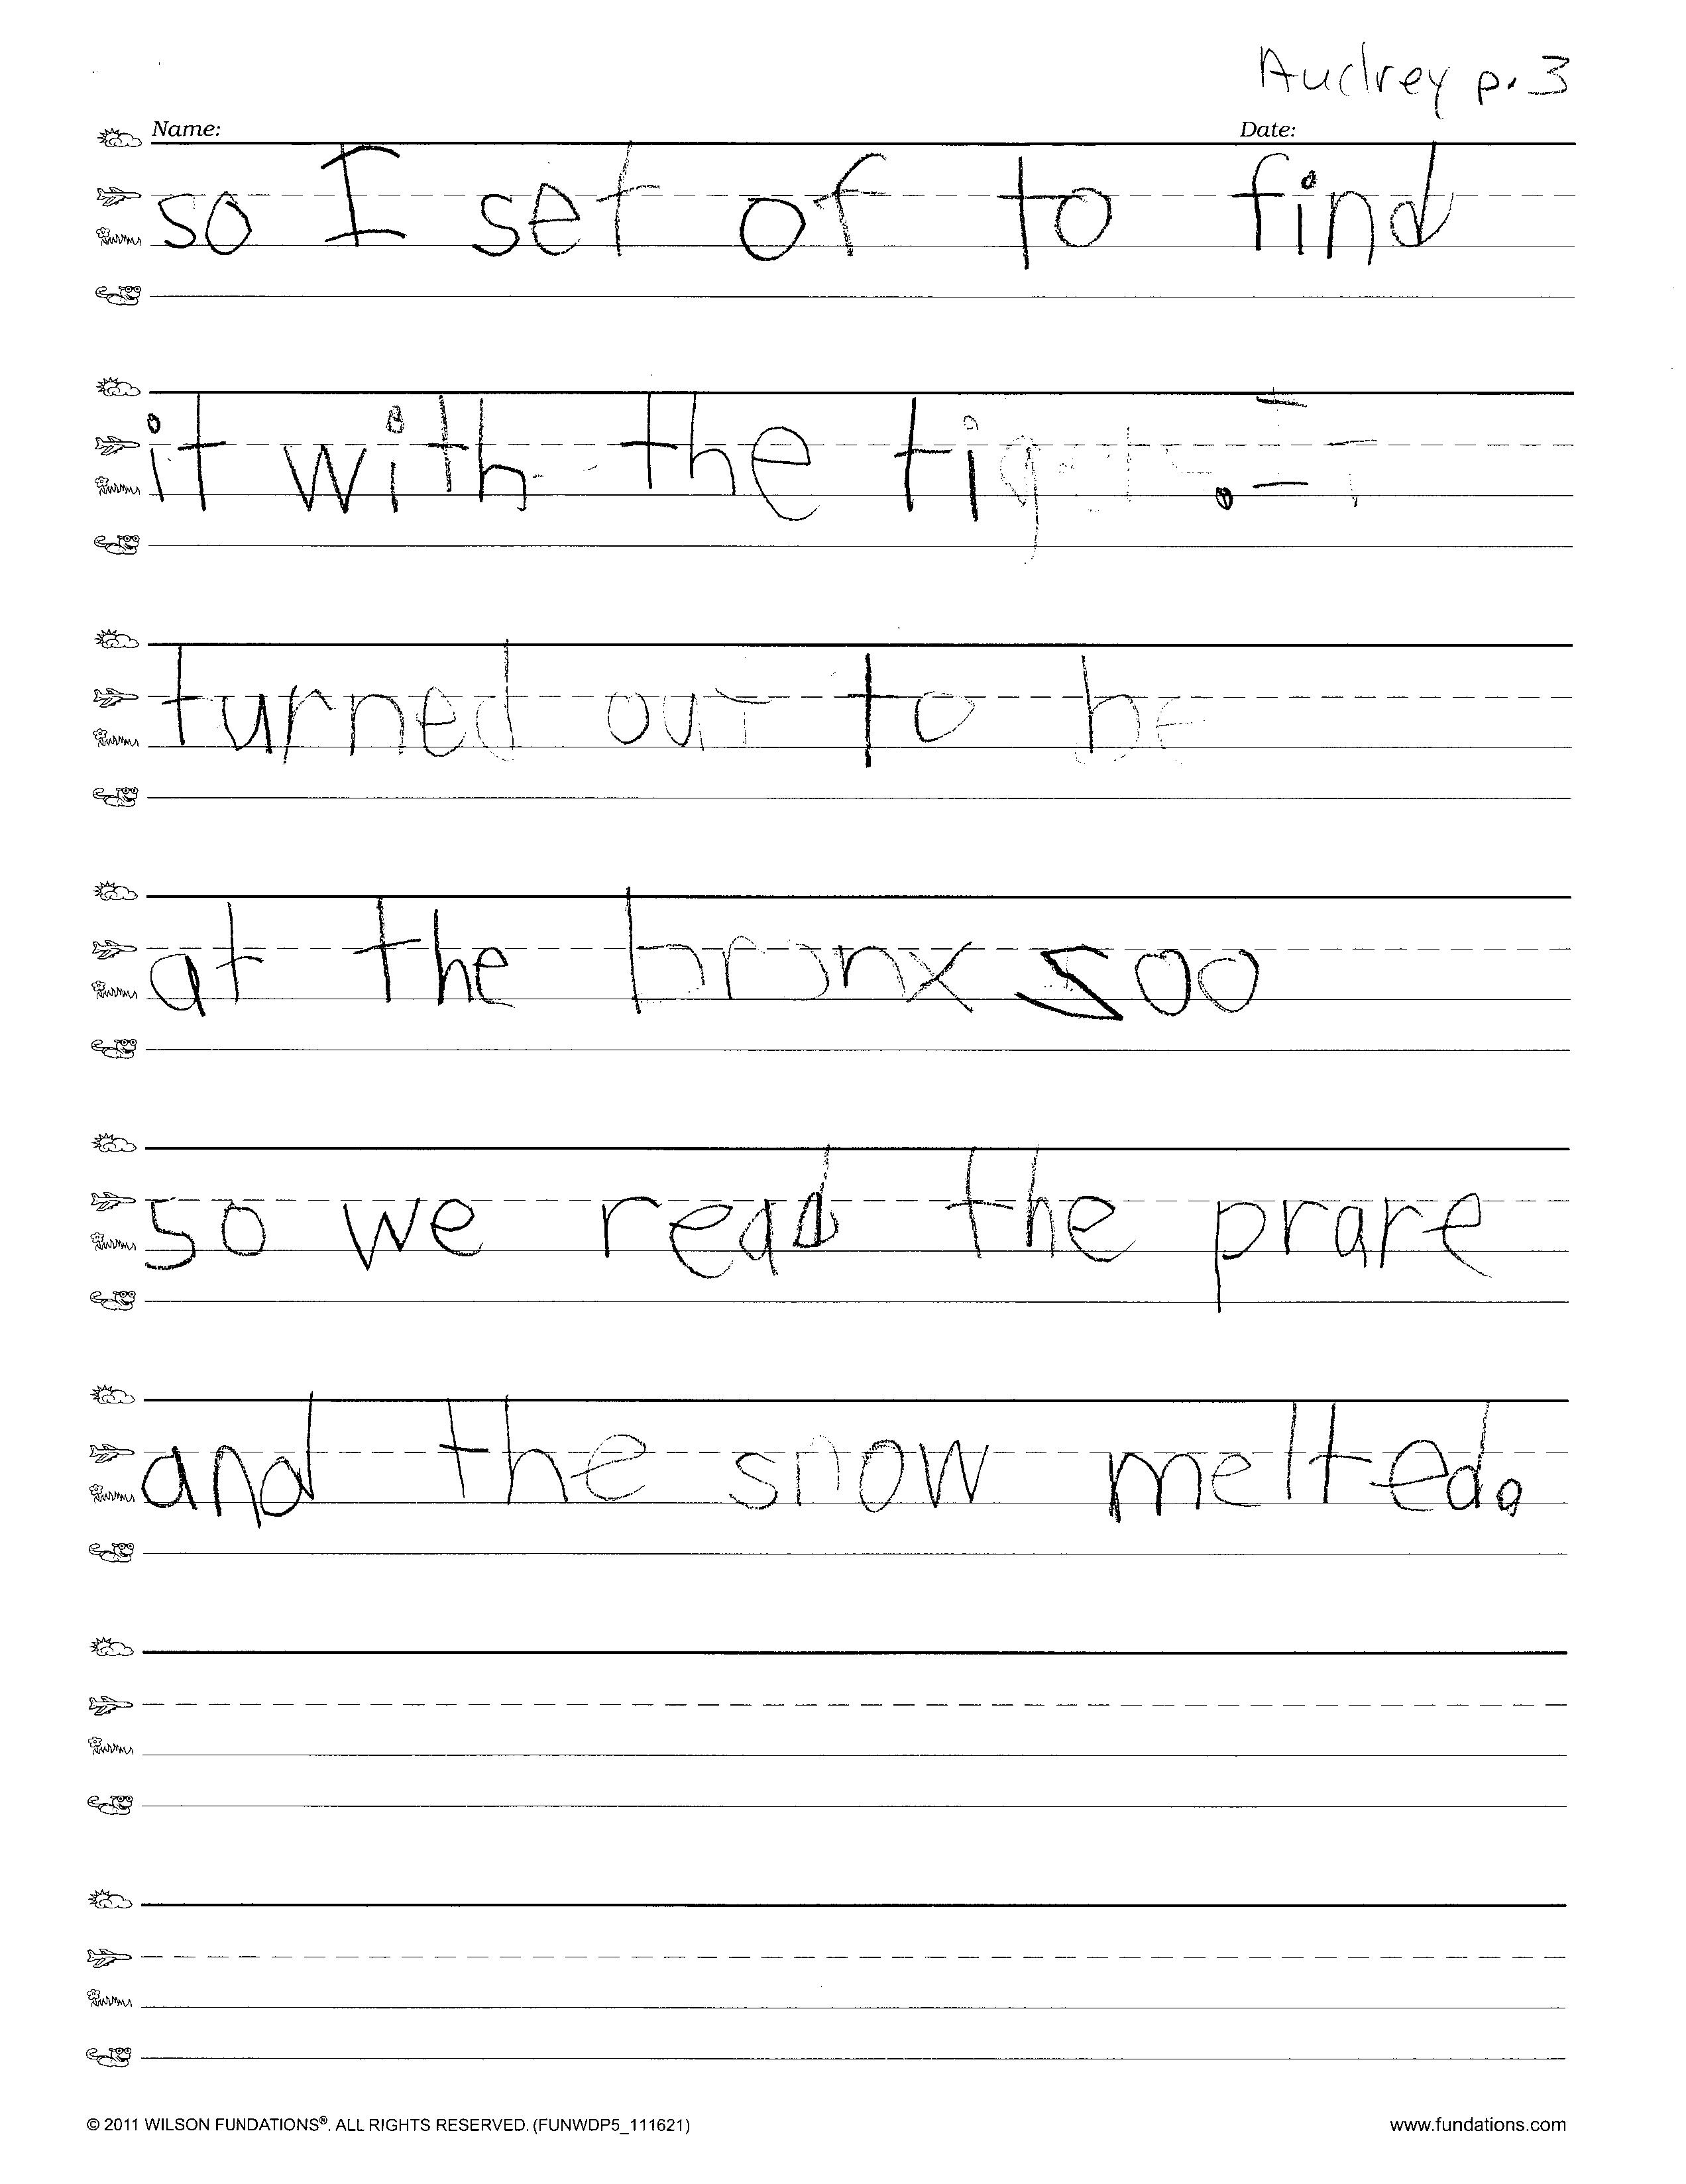 Audrey p. 3
Name: Date:
so I set of to find
it with the . I
turned out to be
at the bronx zoo
so we read the prare
and the snow melted.
© 2011 WILSON FUNDATIONS®. ALL RIGHTS RESERVED. (FUNWDP5_111621) www.fundations.com